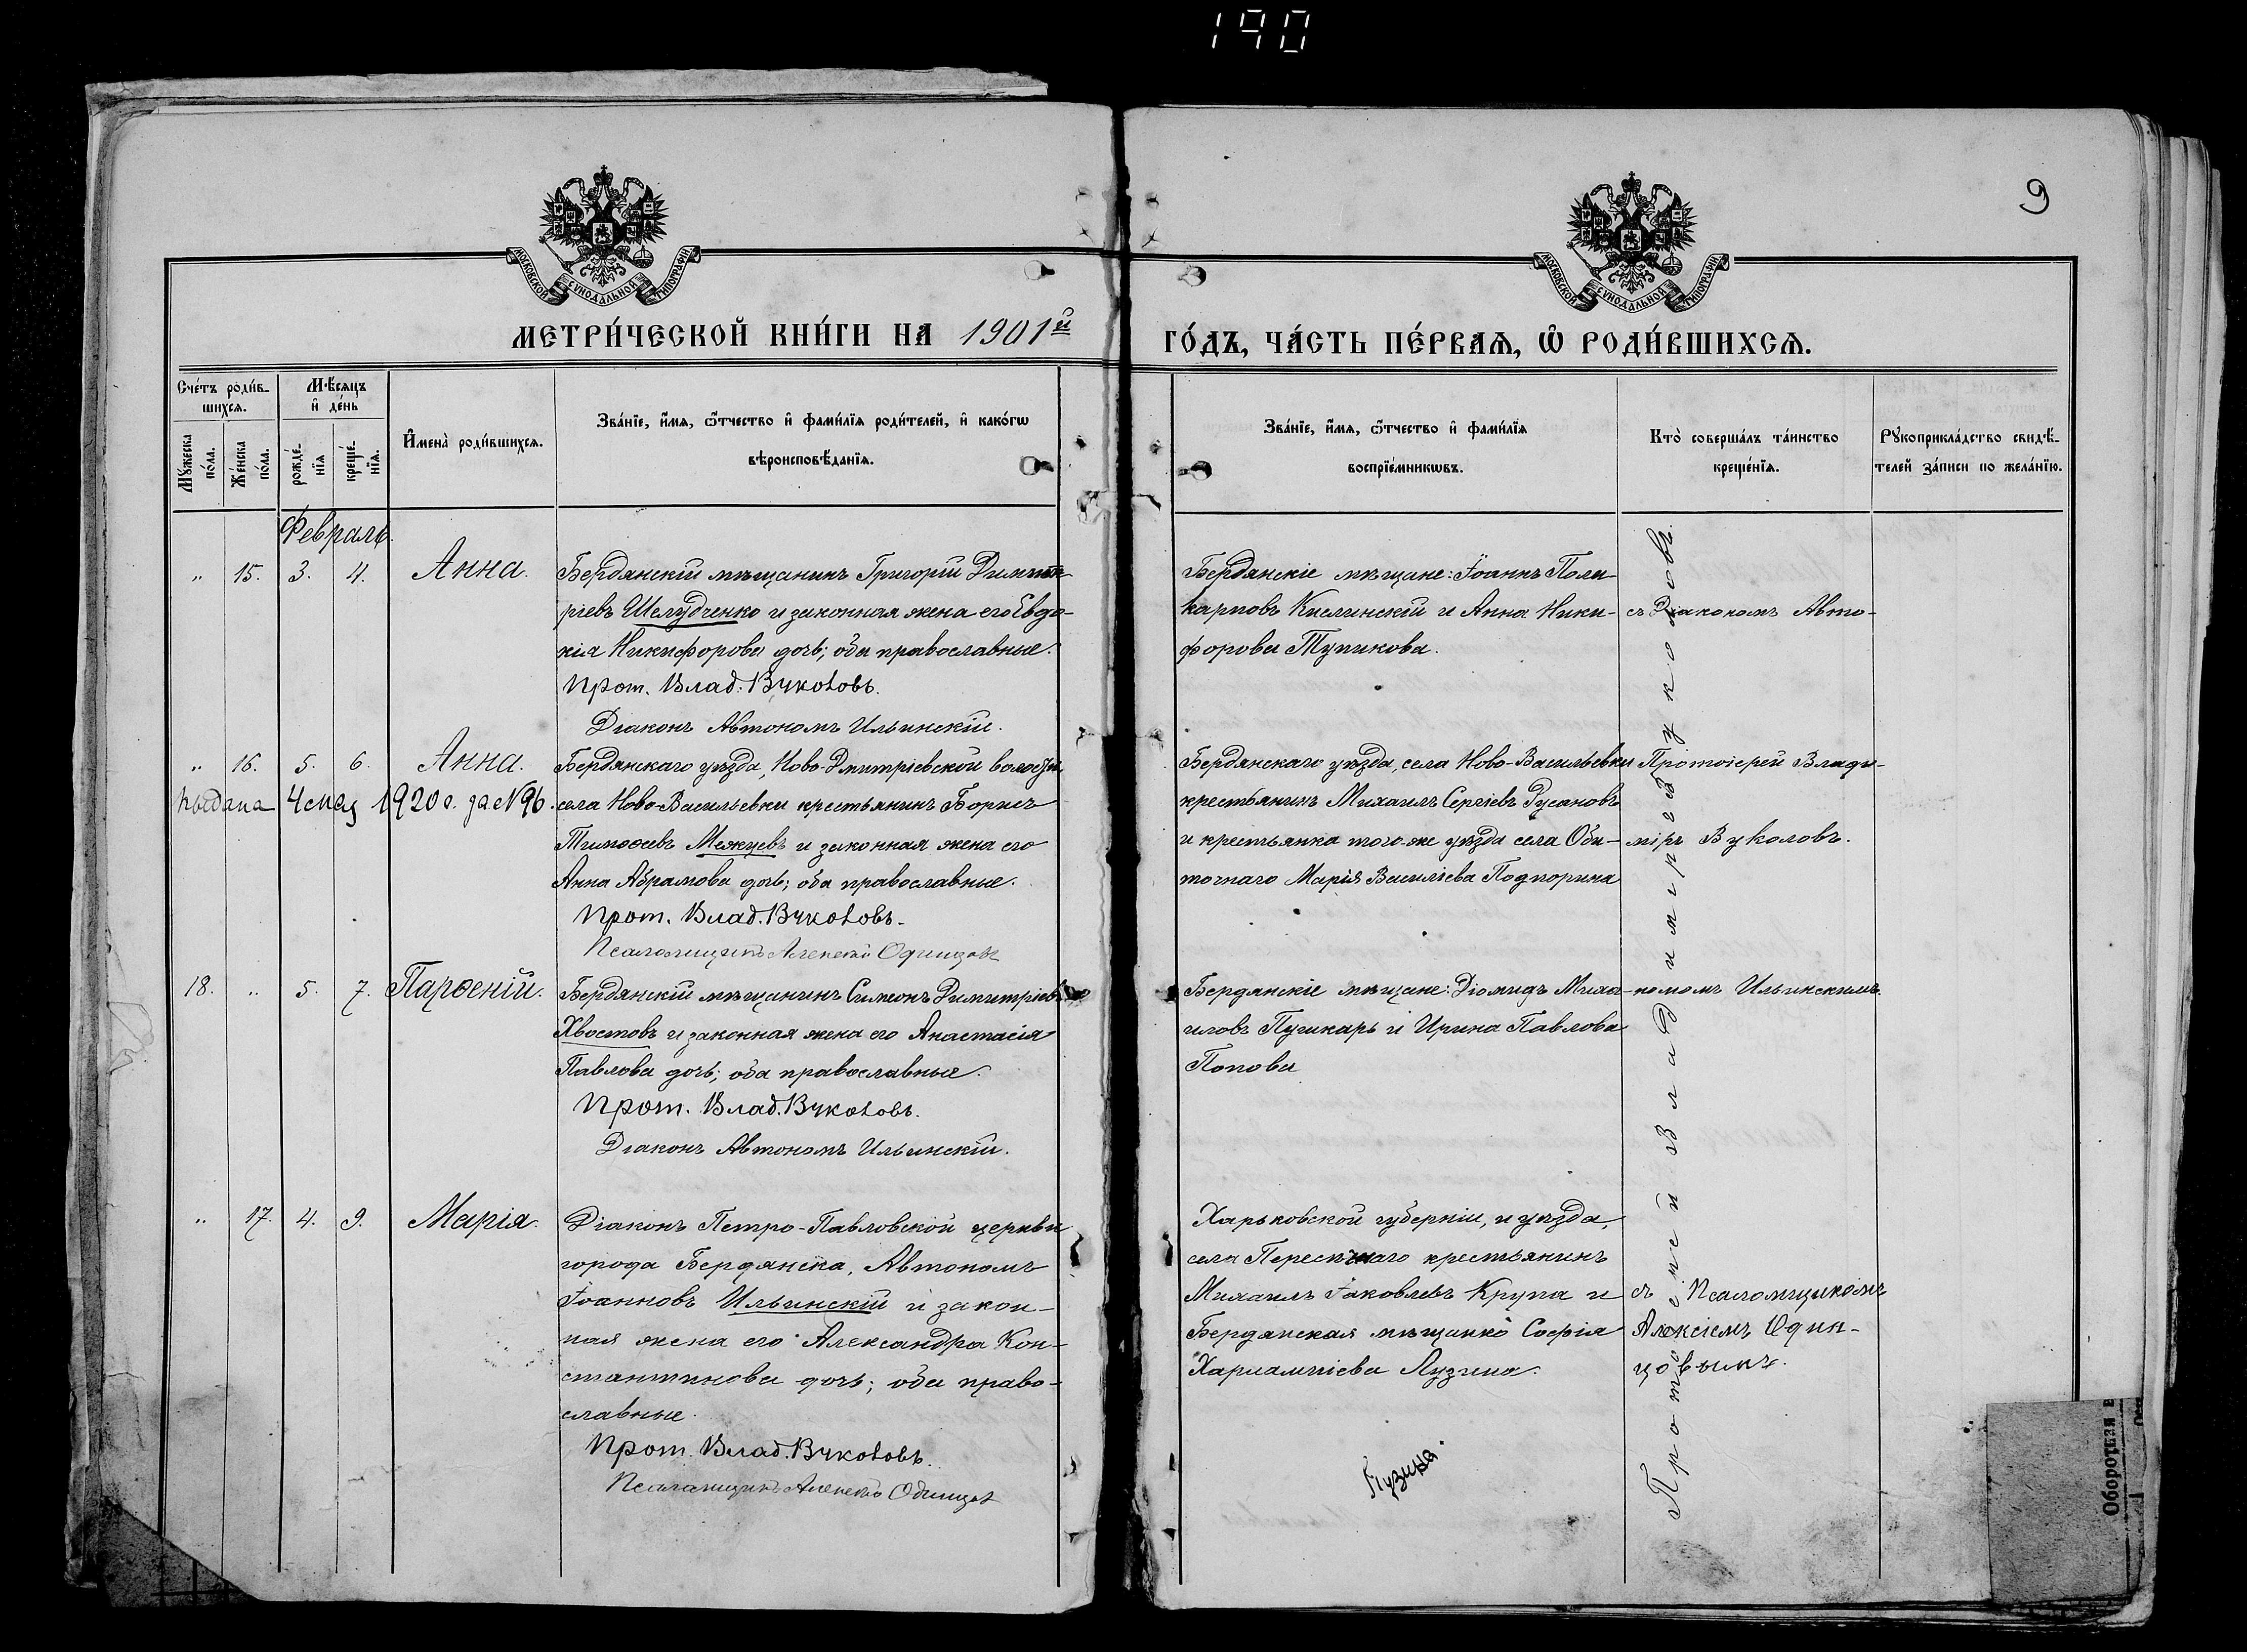 190
9
МОСКОВСКОЙ СУНОДАЛЬНОЙ ТИПОГРАФІИ
МОСКОВСКОЙ СУНОДАЛЬНОЙ ТИПОГРАФІИ
МЕТРИ́ЧЕСКОЙ КНИ́ГИ НА 1901й
ГО́ДЪ, ЧА́СТЬ ПЕ́РВАѦ, Ѡ҆ РОДИ́ВШИХСѦ.
Сче́тъ роди́в-
шихсѧ.
Мꙋжеска по́ла.
Же́нска по́ла.
Мѣ́сѧцъ
и҆ де́нь
рожде́-
нїѧ
креще́-
нїѧ.
И҆мена̀ роди́вшихсѧ.
Зва́нїе, и҆́мѧ, ѻ҆́тчество и҆ фами́лїѧ роди́телей, и҆ како́гѡ
вѣроисповѣ́данїѧ.
Зва́нїе, и҆́мѧ, ѻ҆́тчество и҆ фами́лїѧ
воспрїе́мникѡвъ.
Кто̀ соверша́лъ та́инство
креще́нїѧ.
Рꙋкоприкла́дство свидѣ́-
телей за́писи по жела́нїю.
Февраль.
" 15. 3. 4. Анна.
Бердянскій мѣщанинъ Григорій Димит-
ріевъ Шелудченко и законная жена его Евдо-
кія Никифорова дочь; оба православные.
Прот. Влад. Вуколовъ.
Діаконъ Автономъ Ильинскій.
Бердянскіе мѣщане: Іоаннъ Поли
карповъ Кислинскій и Анна Ники-
форова Тупикова.
съ Діакономъ Авто-
" 16. 5. 6. Анна.
Выдана 4 мая 1920 г. за №96.
Бердянскаго уѣзда, Ново-Дмитріевской волости,
села Ново-Васильевки крестьянинъ Борисъ
Тимоѳеевъ Межуевъ и законная жена его
Анна Абрамова дочь; оба православные.
Прот. Влад. Вуколовъ.
Псаломщикъ Алексѣй Одинцовъ
Бердянскаго уѣзда, села Ново-Васильевки
крестьянинъ Михаилъ Сергіевъ Русановъ
и крестьянка того-же уѣзда села Оби-
точнаго Марія Василіева Подпорина
Протоіерей Влади-
міръ Вуколовъ.
18. " 5. 7. Парѳеній.
Бердянскій мѣщанинъ Симеонъ Димитріевъ
Хвостовъ и законная жена его Анастасія
Павлова дочь; оба православные.
Прот. Влад. Вуколовъ.
Діаконъ Автономъ Ильинскій.
Бердянскіе мѣщане: Діомидъ Миха-
иловъ Пушкарь и Ирина Павлова
Попова
номомъ Ильинскимъ.
" 17. 4. 9. Марія.
Діаконъ Петро-Павловской церкви
города Бердянска, Автономъ
Іоанновъ Ильинскій и закон-
ная жена его Александра Кон-
стантинова дочь; оба право-
славные.
Прот. Влад. Вуколовъ.
Псаломщикъ Алексѣй Одинцовъ
Харьковской губерніи, и уѣзда,
села Пересѣчнаго крестьянинъ
Михаилъ Іаковлевъ Крупа и
Бердянская мѣщанка Софія
Харлампіева Лузина.
Пузина
съ Псаломщикомъ
Алексіемъ Один-
цовымъ.
Протоіерей Владиміръ Вуколовъ.
Оборотная